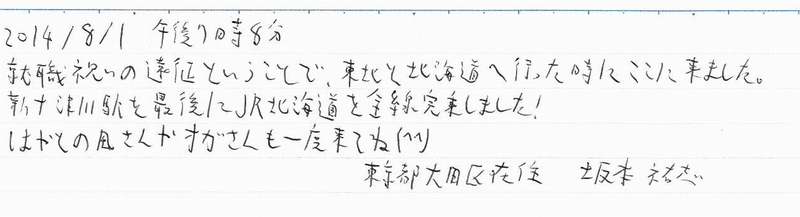 2014/8/1 午後7時8分
就職祝いの遠征ということで、東北と北海道へ行った時にここに来ました。
新十津川駅を最後にJR北海道を全線完乗しました!
はがとの風さんかすがさんも一度来てね(^^)
東京都大田区在住 坂本